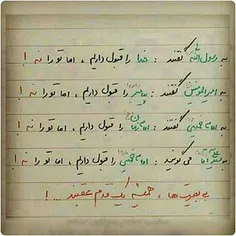 به رسول الله گفتند : خدا را قبول داریم ، اما تو را نه !
به امیرالمومنین گفتند : پیامبر را قبول داریم ، اما تو را نه !
به امام خمینی گفتند : امام زمان را قبول داریم ، اما تو را نه !
به امام خامنه ای می گویند : امام خمینی را قبول داریم ، اما تو را نه !
بی بصیرت ها ، همیشه یک قدم عقبند ... !